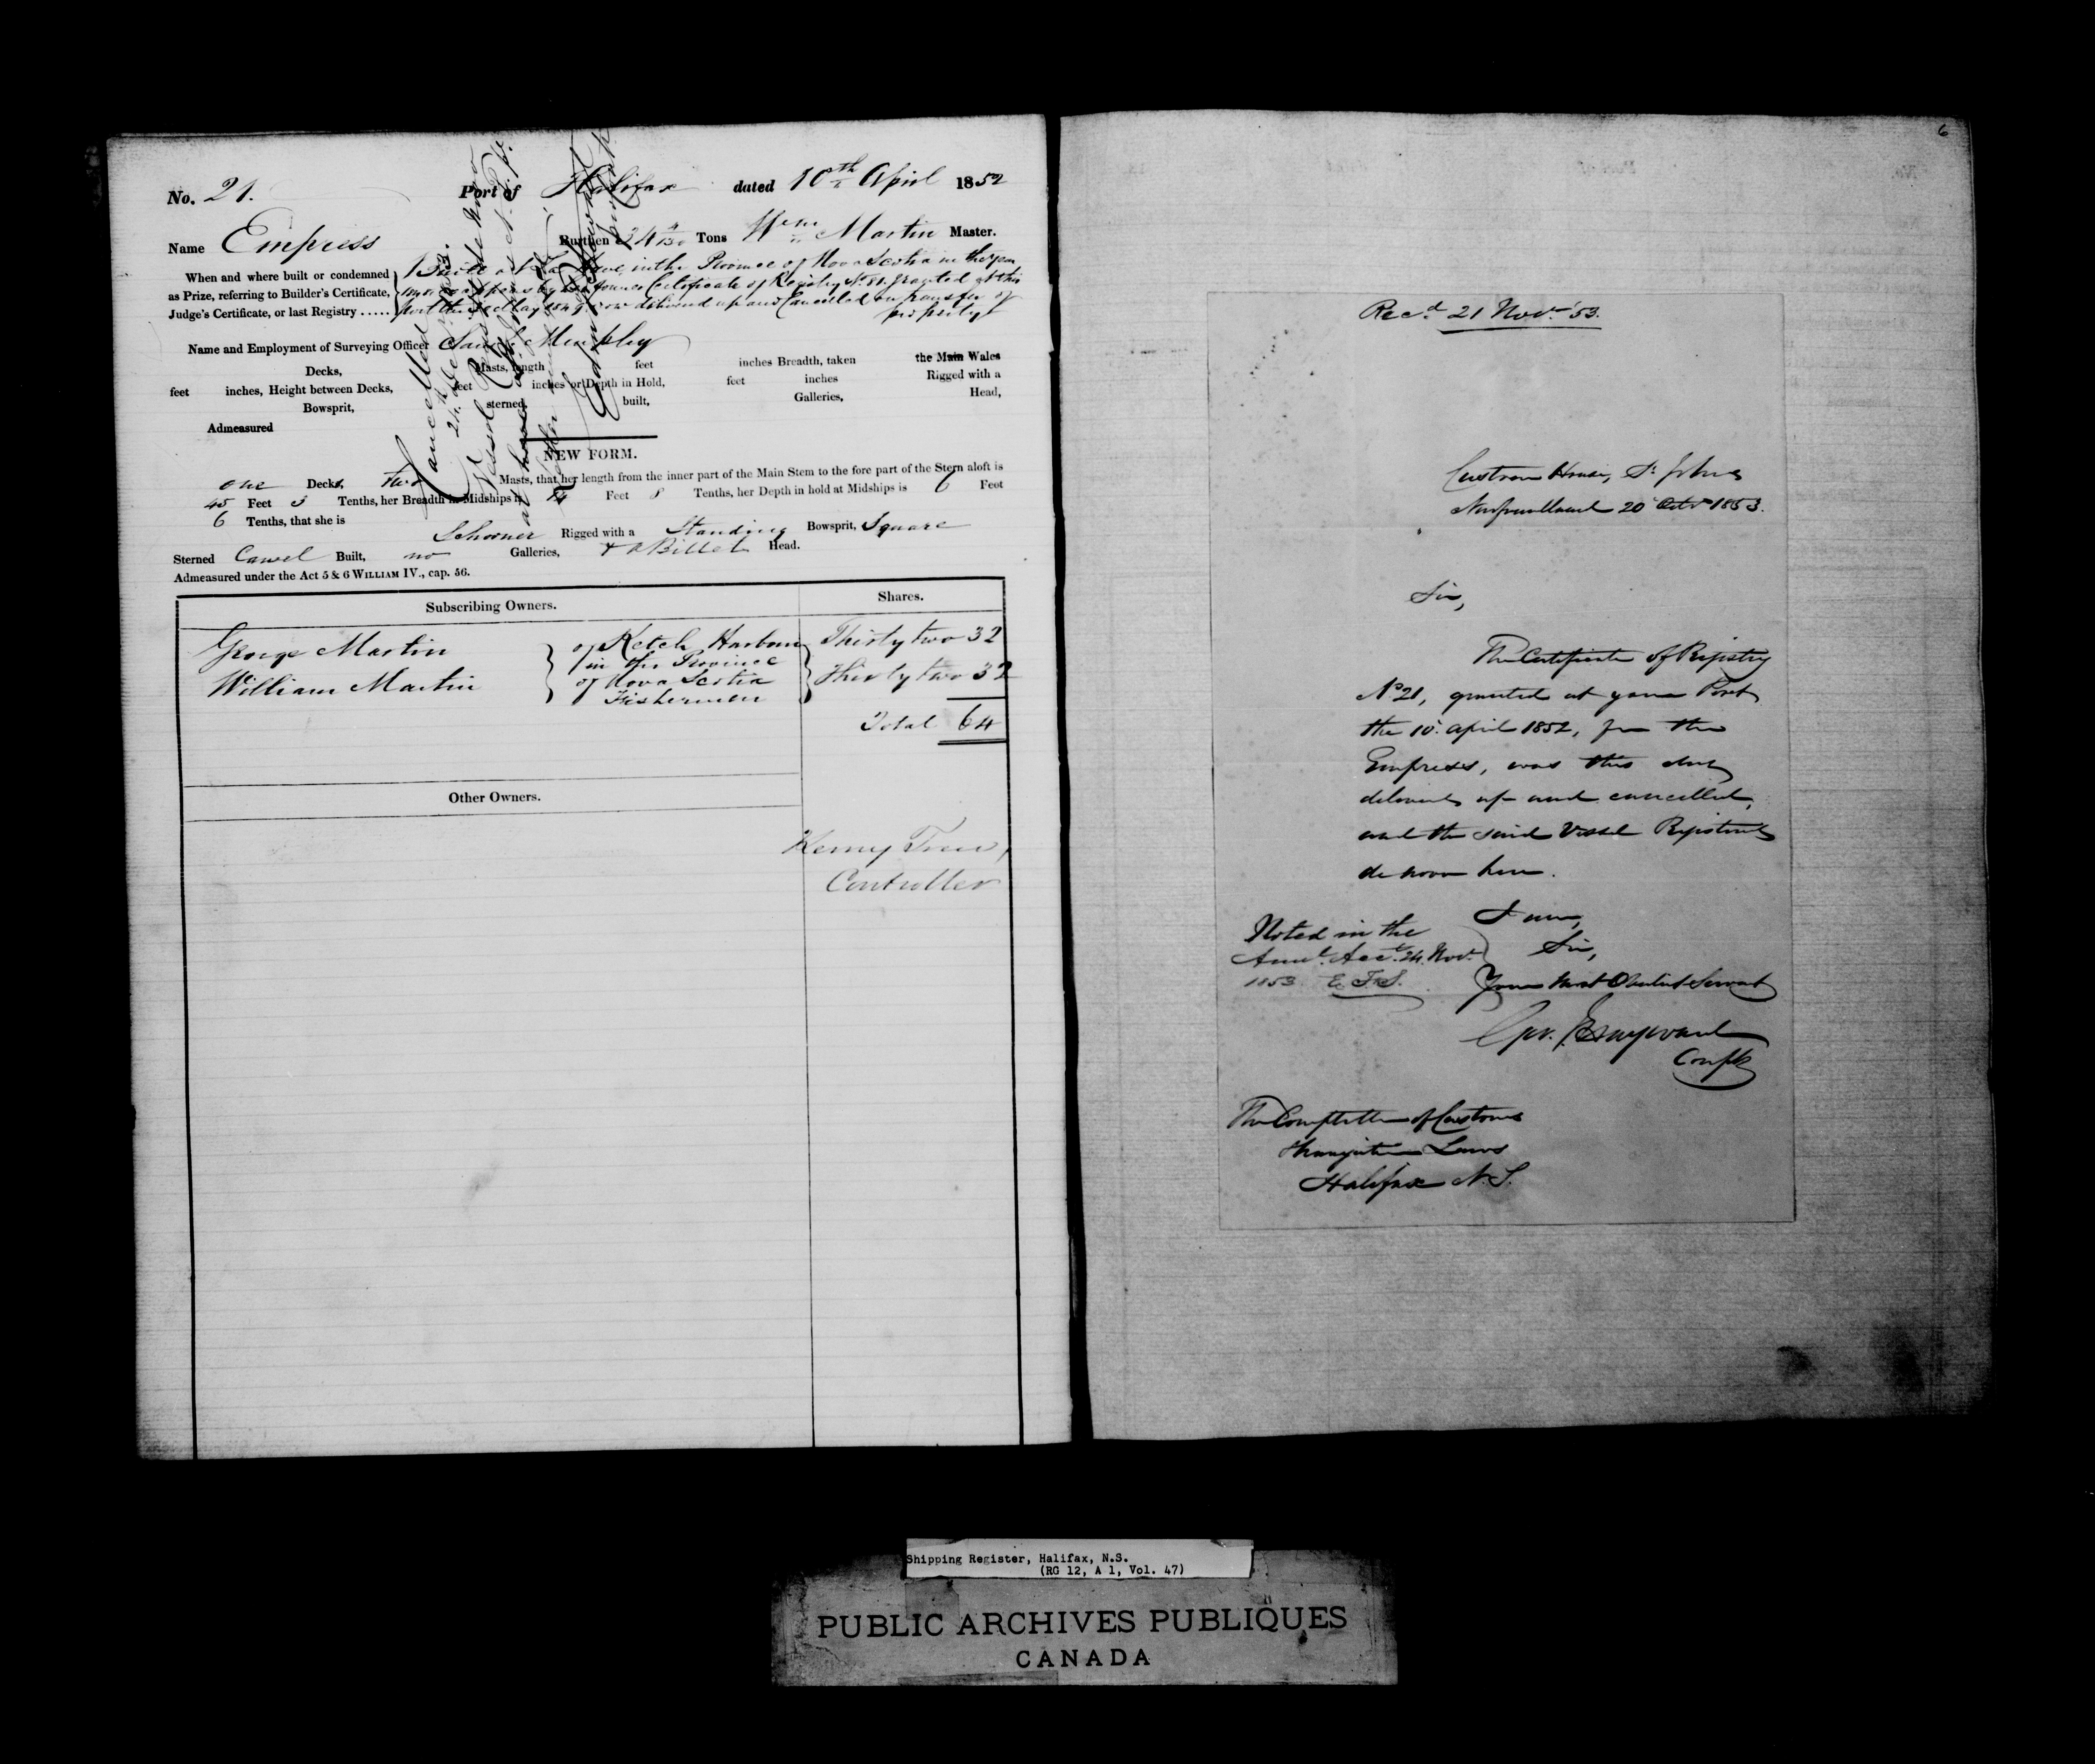 No. 21. Port of Halifax dated 10th April 1852
Name Empress Burthen 34 Tons Wm Martin Master.
When and where built or condemned
as Prize, referring to Builder's Certificate,
Judge's Certificate, or last Registry .....
Built at in the Province of Nova Scotia in the year
former Certificate of Registry No. granted at this
port the May now delivered up and Cancelled on transfer of
property
Name and Employment of Surveying Officer
Decks, Masts, length feet inches Breadth, taken the Main Wales
feet inches, Height between Decks, feet inches or Depth in Hold, feet inches Rigged with a
Bowsprit, sterned, built, Galleries, Head,
Admeasured
Cancelled
Vessel Registered de novo
NEW FORM.
one Decks, two Masts, that her length from the inner part of the Main Stem to the fore part of the Stern aloft is
45 Feet 3 Tenths, her Breadth in Midships is 14 Feet 8 Tenths, her Depth in hold at Midships is 6 Feet
6 Tenths, that she is Schooner Rigged with a Standing Bowsprit, Square
Sterned Carvel Built, no Galleries, & a Billet Head.
Admeasured under the Act 5 & 6 WILLIAM IV., cap. 56.
Subscribing Owners. Shares.
George Martin
William Martin
of Ketch Harbour
in the Province
of Nova Scotia
Fishermen
Thirty two 32
Thirty two 32
Total 64
Other Owners.
Controller
6
Recd. 21 Novr. '53.
Custom House, St. Johns
Newfoundland 20 Octr 1853.
Sir,
The Certificate of Registry
No 21, granted at your Port
the 10 April 1852, for the
Empress, was this day
delivered up and cancelled,
and the said Vessel Registered
de novo here.
I am,
Sir,
Your most Obedient Servant
Compr
Noted in the
Acct. 24 Novr.
1853 E.F.S.
The Comptroller of Customs
Navigation Laws
Halifax N.S.
Shipping Register, Halifax, N.S.
(RG 12, A 1, Vol. 47)
PUBLIC ARCHIVES PUBLIQUES
CANADA